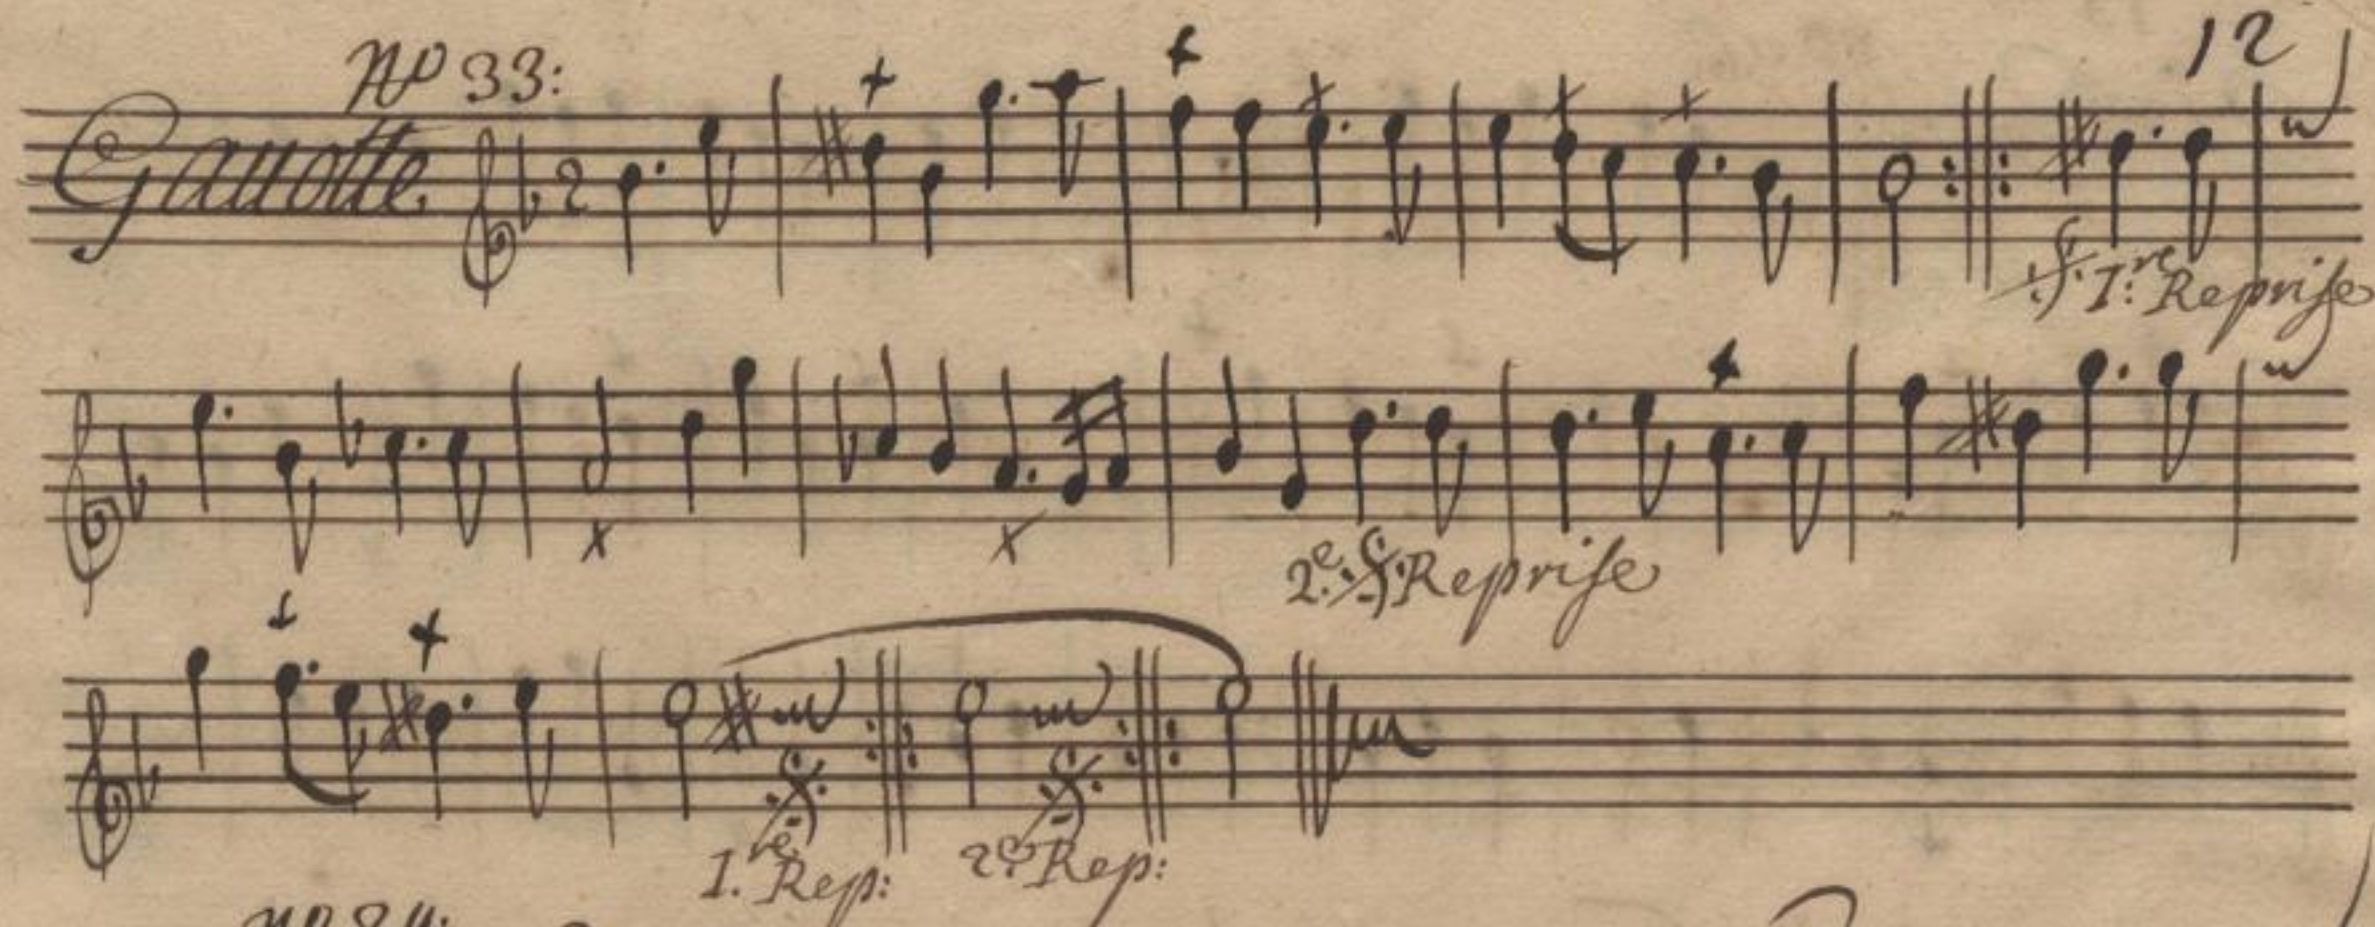 No 33: 12
Gauotte 2
I:re Reprise
2.e Reprise
1.re Rep: 2.e Rep: